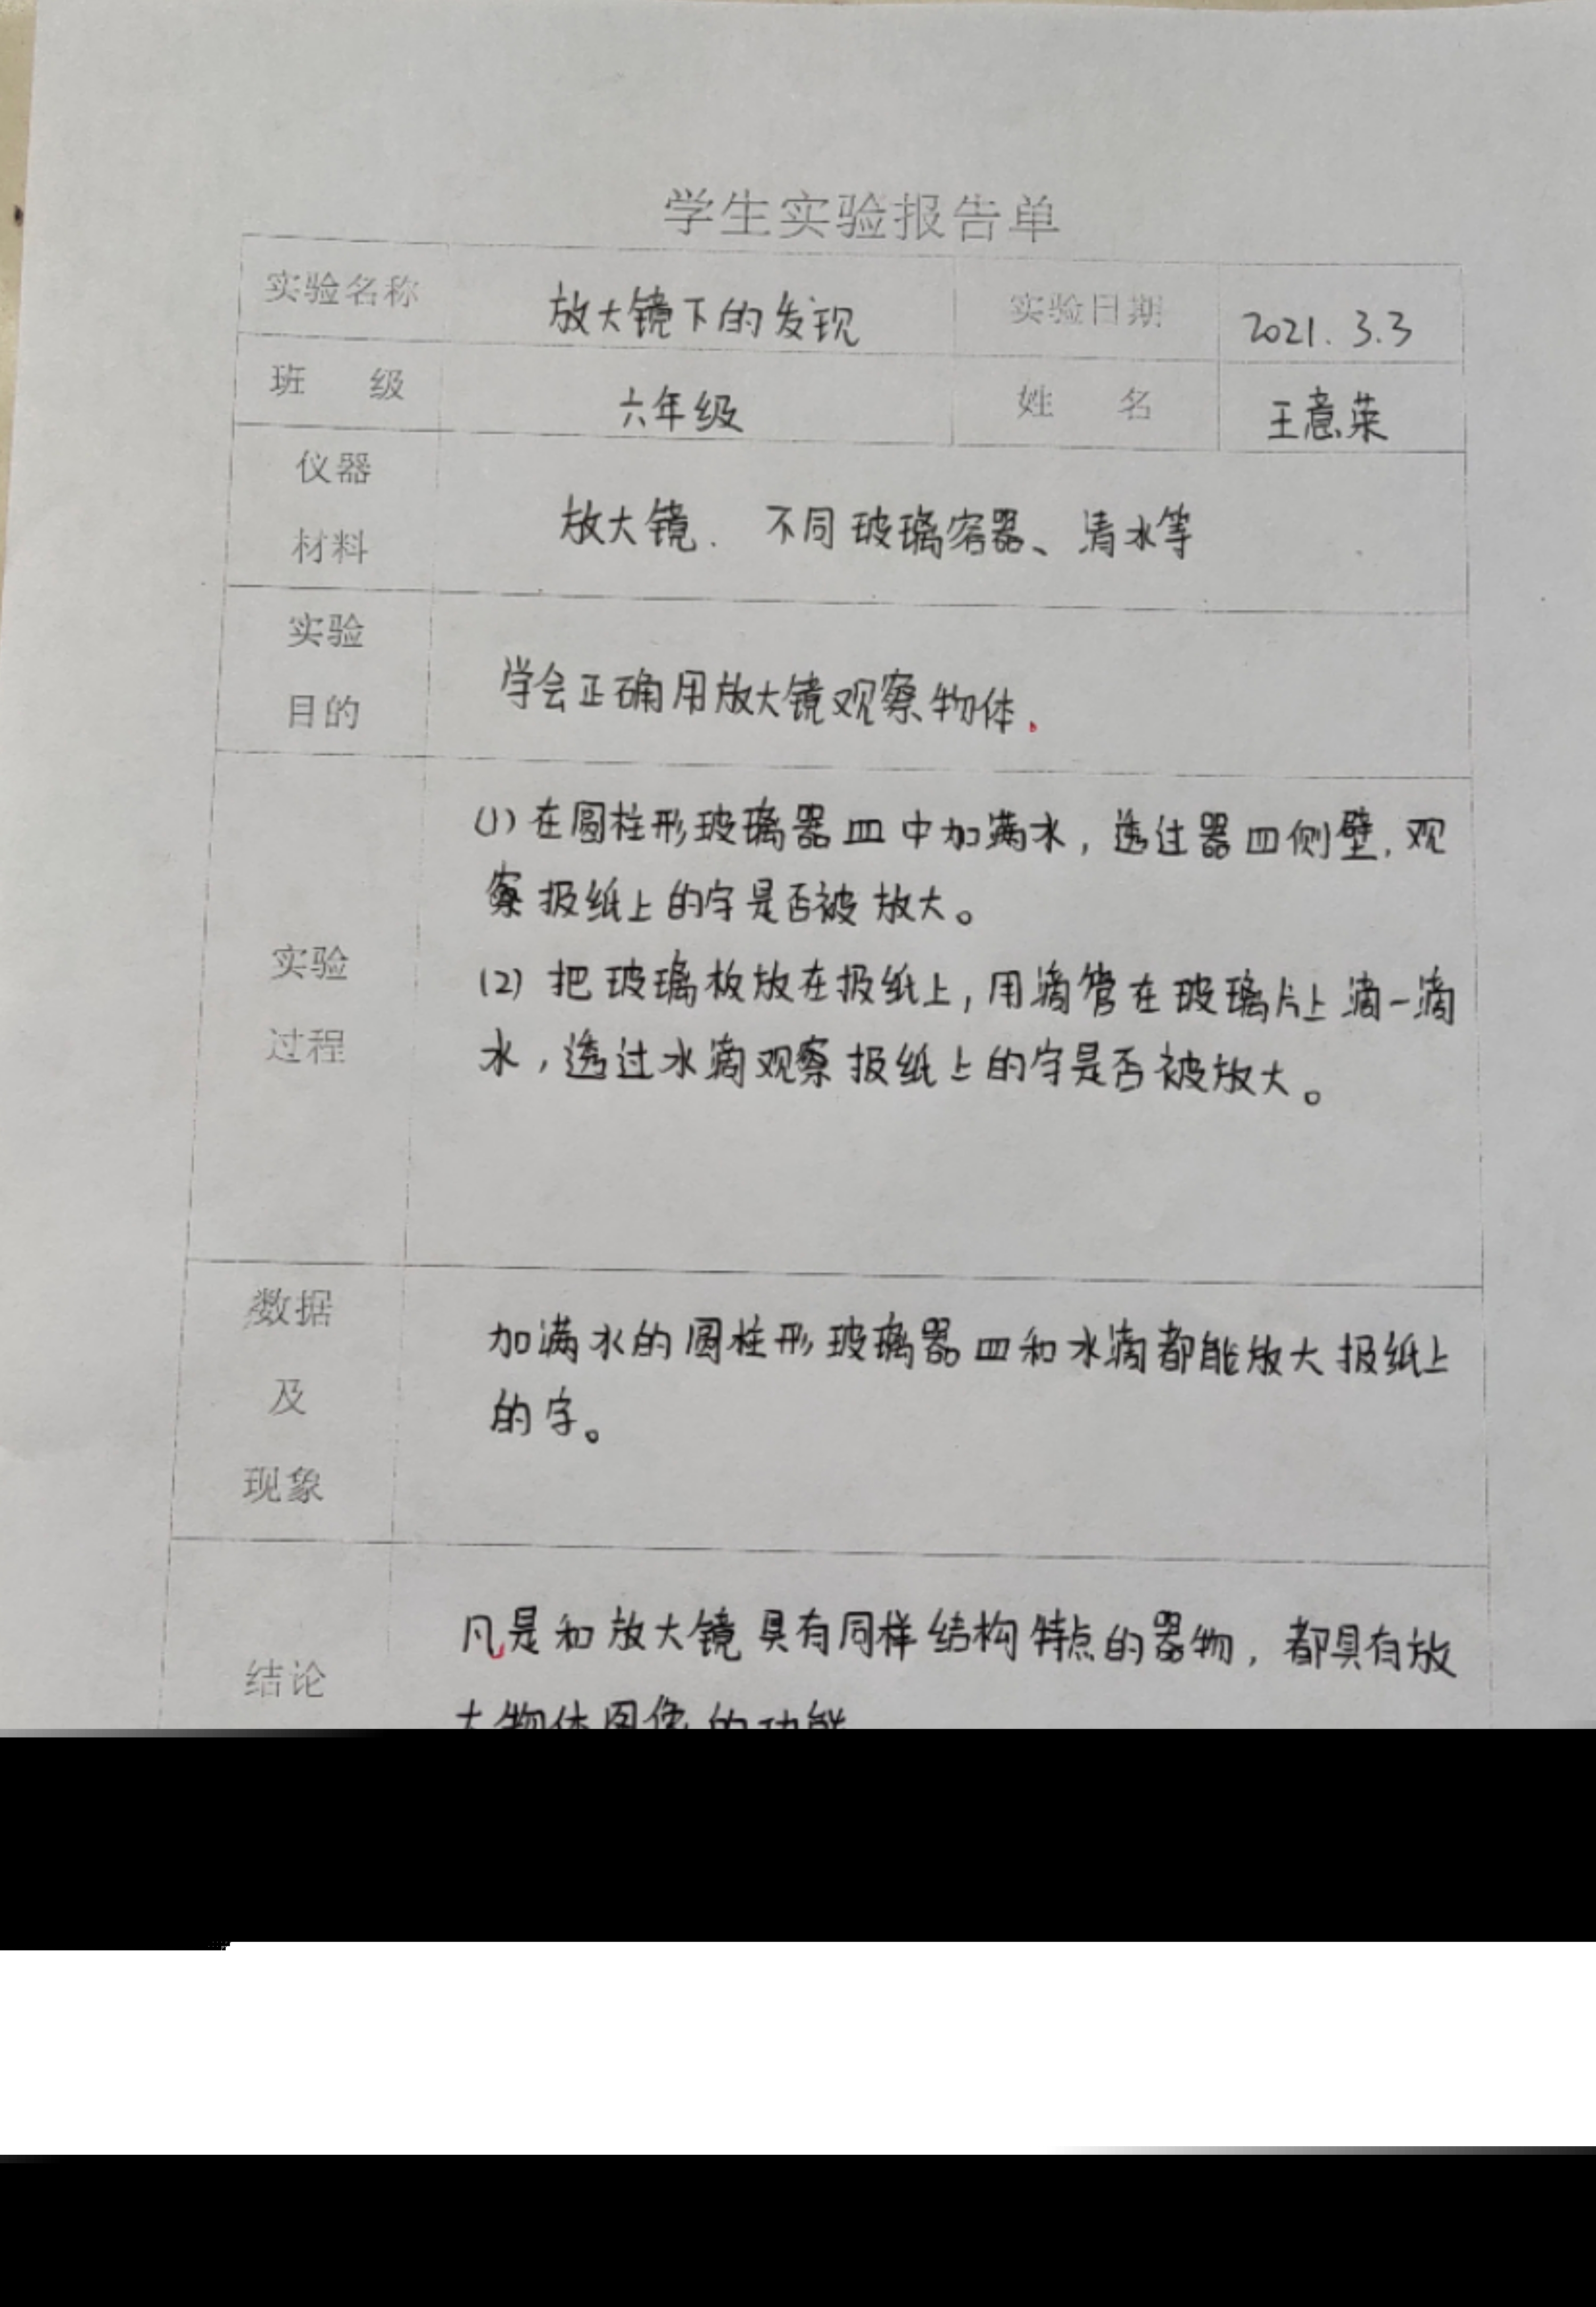 学生实验报告单
实验名称 放大镜下的发现 实验日期 2021.3.3
班 级 六年级 姓 名 王意荣
仪器
材料
放大镜、不同玻璃容器、清水等
实验
目的
学会正确用放大镜观察物体.
实验
过程
(1) 在圆柱形玻璃器皿中加满水，透过器皿侧壁，观
察报纸上的字是否被放大。
(2) 把玻璃板放在报纸上，用滴管在玻璃片上滴一滴
水，透过水滴观察报纸上的字是否被放大。
数据
及
现象
加满水的圆柱形玻璃器皿和水滴都能放大报纸上
的字。
结论
凡是和放大镜具有同样结构特点的器物，都具有放
大物体图像的功能